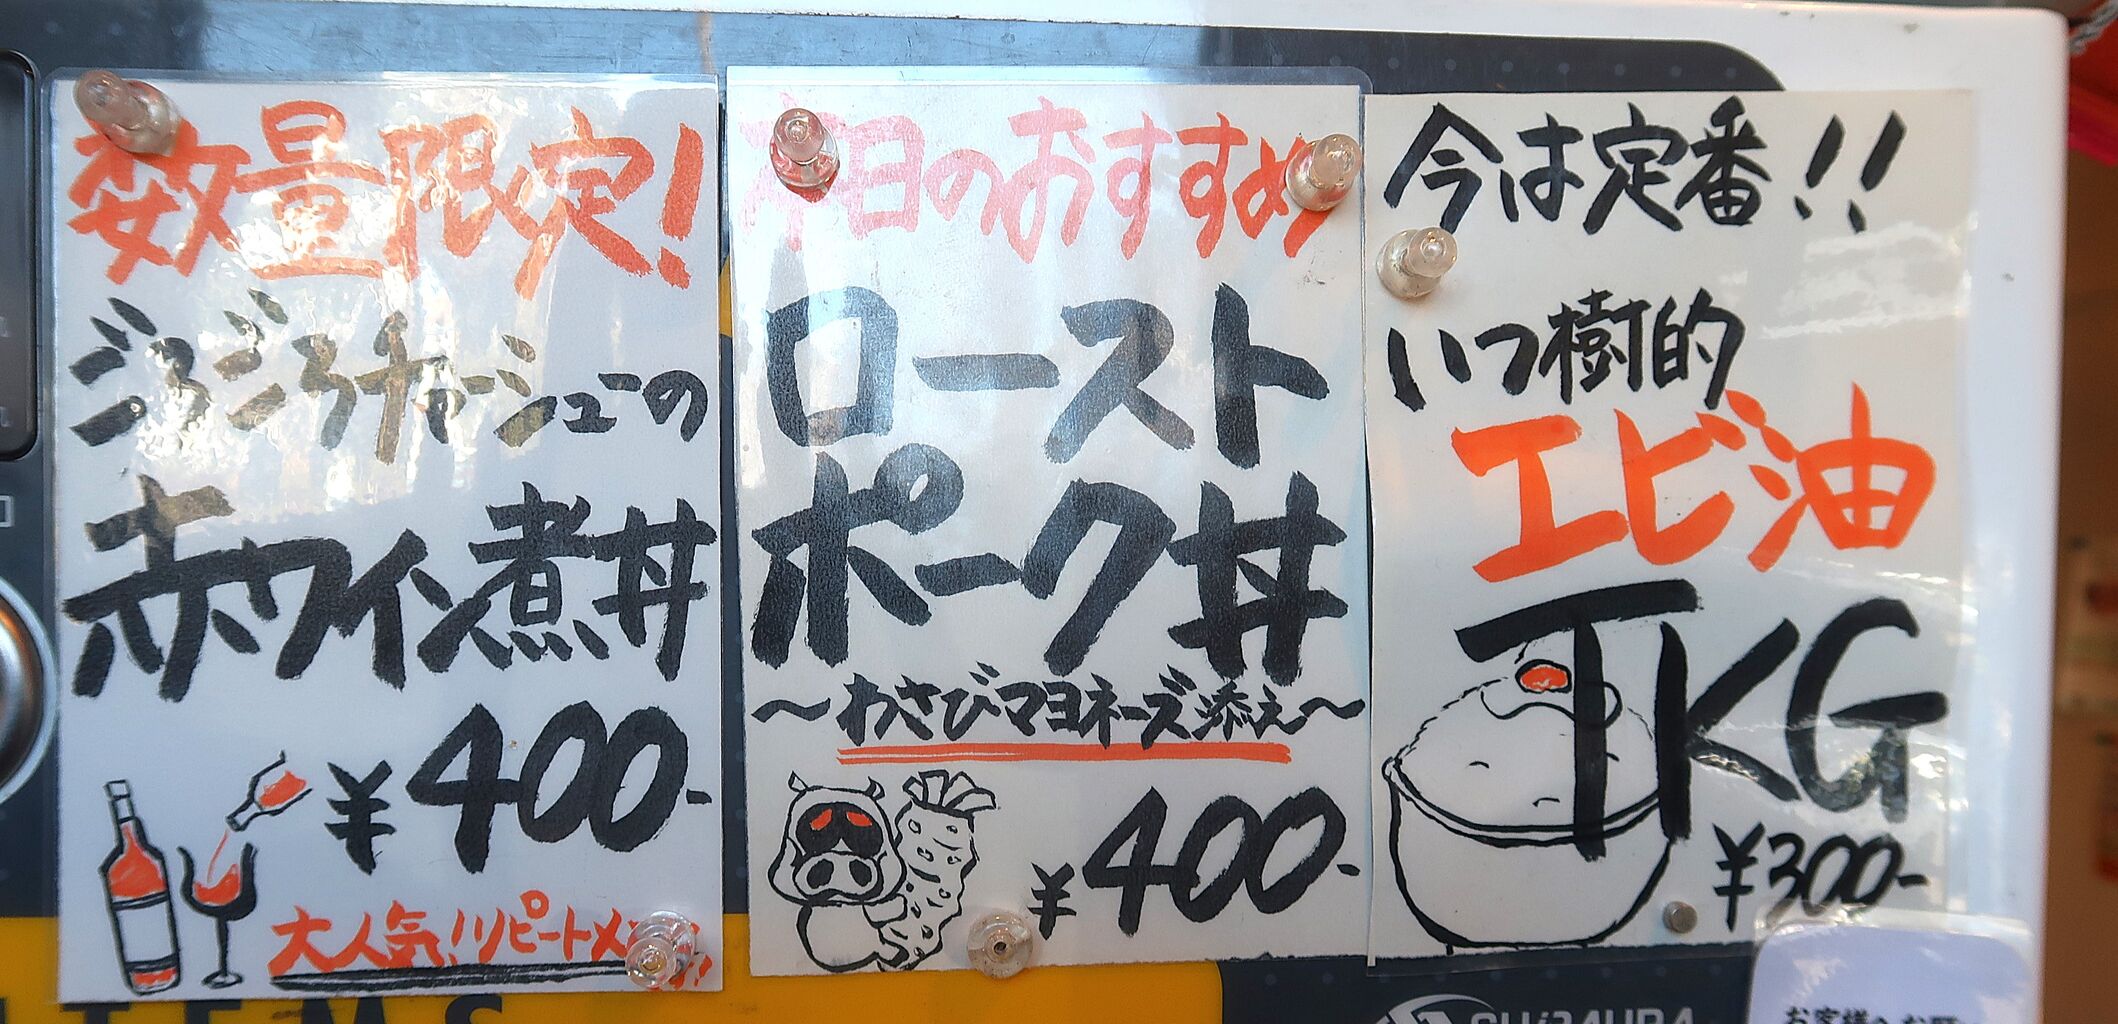 数量限定!
ごろごろチャーシューの
赤ワイン煮丼
¥400-
大人気!リピートメ
本日のおすすめ
ロースト
ポーク丼
~わさびマヨネーズ添え~
¥400-
今は定番!!
いつ樹的
エビ油
TKG
¥300-
お客様へお願